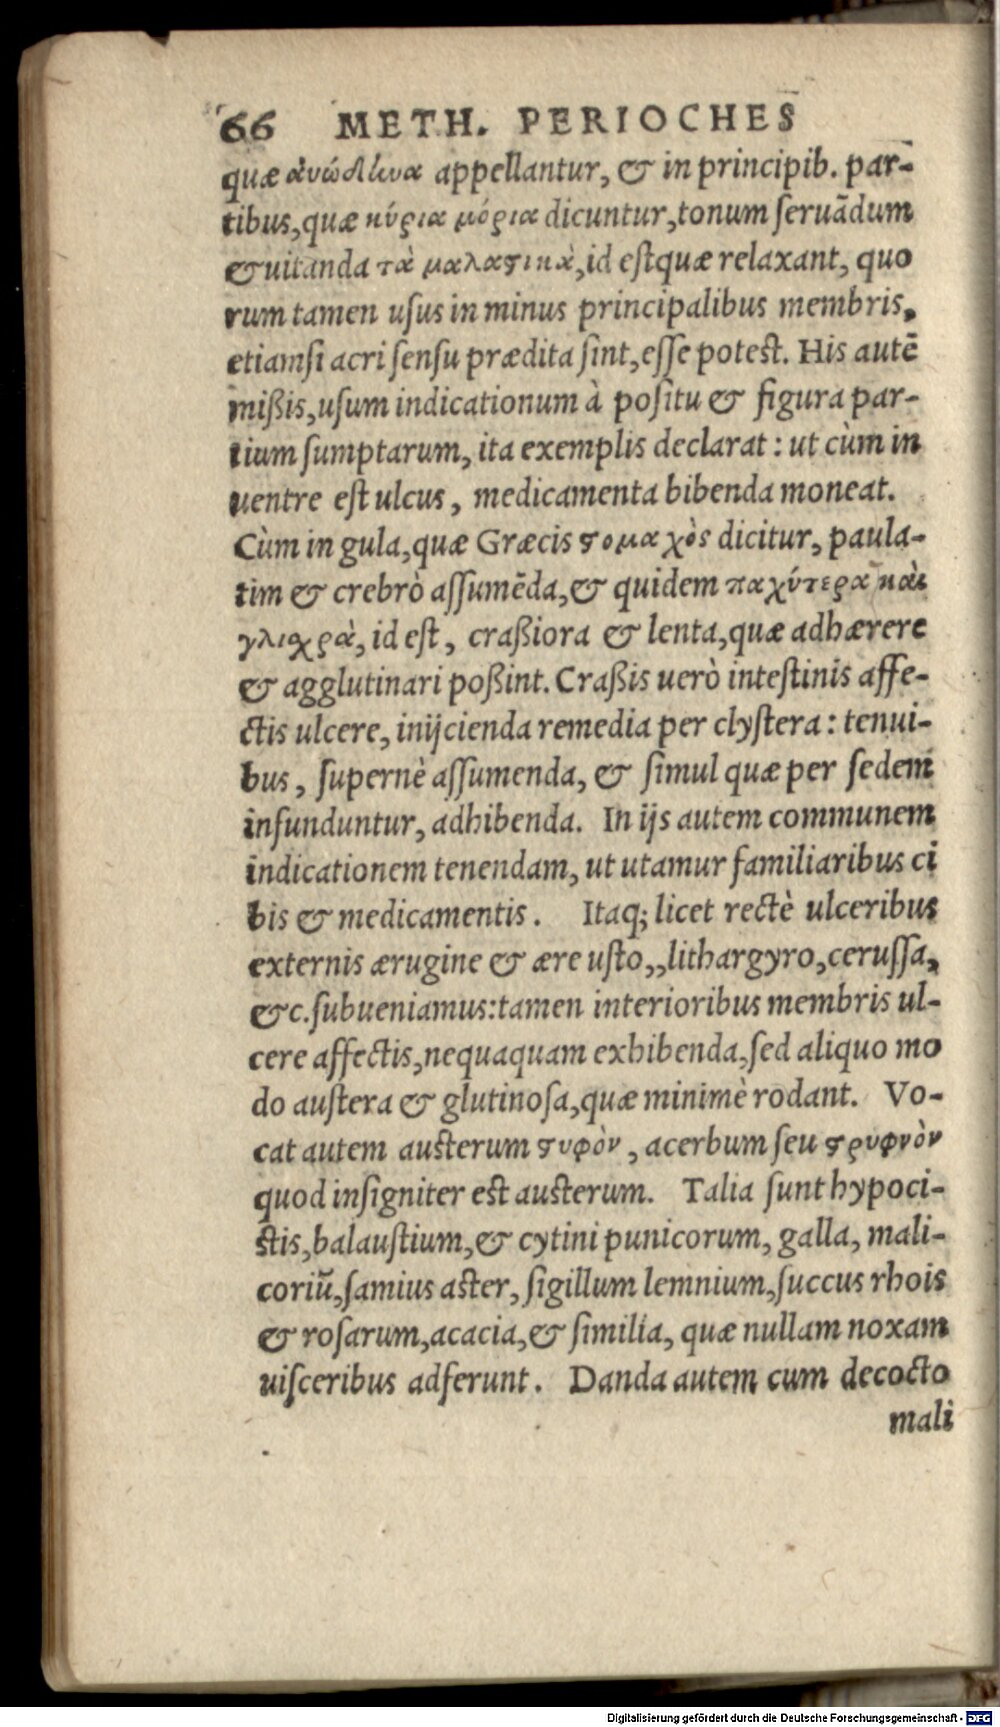 66 METH. PERIOCHES
quæ ἀνώδυνα appellantur, & in principib. par-
tibus, quæ κύρια μόρια dicuntur, tonum seruãdum
& uitanda τὰ μαλακτικὰ, id est quæ relaxant, quo
rum tamen usus in minus principalibus membris,
etiamsi acri sensu prædita sint, esse potest. His autẽ
mißis, usum indicationum à positu & figura par-
tium sumptarum, ita exemplis declarat: ut cùm in
uentre est ulcus, medicamenta bibenda moneat.
Cùm in gula, quæ Græcis ϛομαχὸς dicitur, paula-
tim & crebrò assumẽda, & quidem παχύτερα καὶ
γλιχρὰ, id est, craßiora & lenta, quæ adhærere
& agglutinari poßint. Craßis uerò intestinis affe-
ctis ulcere, inijcienda remedia per clystera: tenui-
bus, supernè assumenda, & simul quæ per sedem
infunduntur, adhibenda. In ijs autem communem
indicationem tenendam, ut utamur familiaribus ci
bis & medicamentis. Itaq; licet rectè ulceribus
externis ærugine & ære usto,, lithargyro, cerussa,
&c. subueniamus: tamen interioribus membris ul-
cere affectis, nequaquam exhibenda, sed aliquo mo
do austera & glutinosa, quæ minimè rodant. Vo-
cat autem austerum ϛυφὸν, acerbum seu ϛρυφνὸν
quod insigniter est austerum. Talia sunt hypoci-
stis, balaustium, & cytini punicorum, galla, mali-
coriũ, samius aster, sigillum lemnium, succus rhois
& rosarum, acacia, & similia, quæ nullam noxam
uisceribus adferunt. Danda autem cum decocto
mali
Digitalisierung gefördert durch die Deutsche Forschungsgemeinschaft - DFG